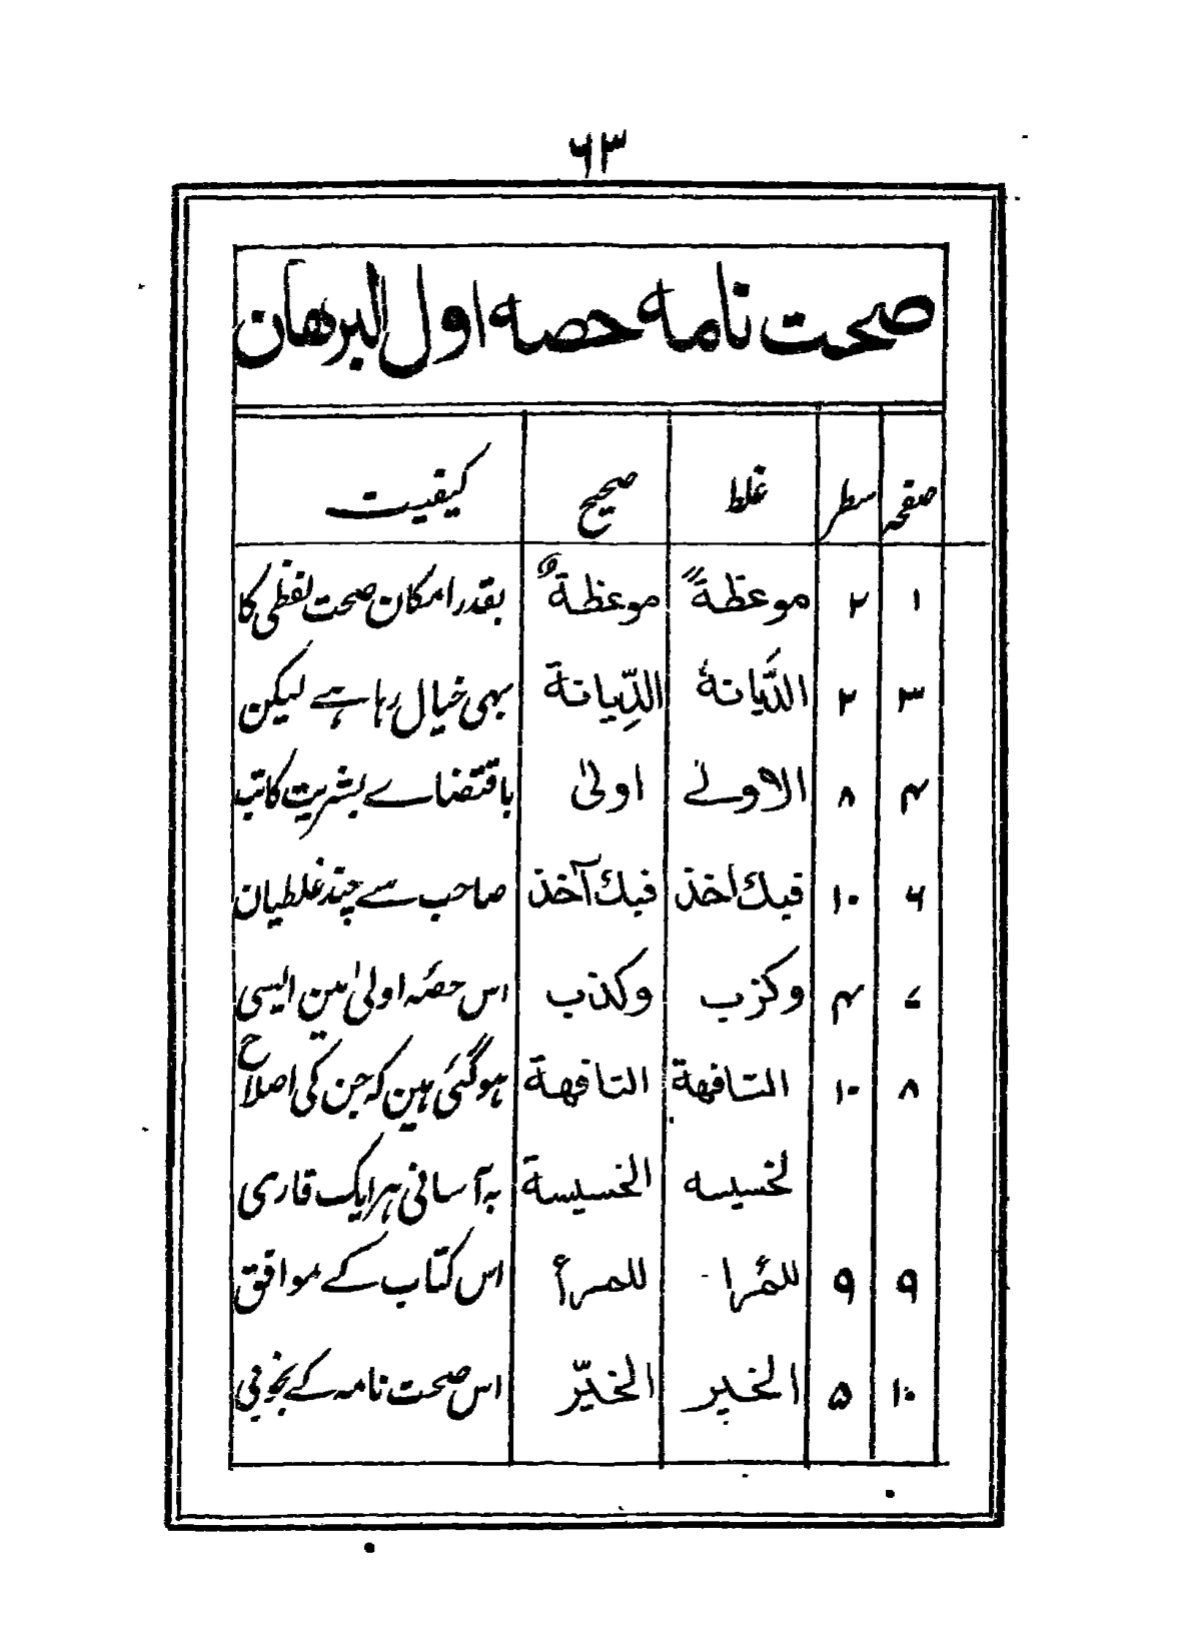 ۶۳
صحت نامہ حصہ اول البرهان
صفحہ سطر غلط صحیح کیفیت
۱ ۲ موعظةً موعظةٌ بقدر امکان صحت لفظی کا
۳ ۲ الدَّیانةُ الدِّیانة بھی خیال رہا ہے لیکن
۴ ۸ الاولے اولیٰ باقتضاے بشریت کاتب
۶ ۱۰ قبك اخذ فبك آخذ صاحب سے چند غلطیان
۷ ۴ وکزب وکذب اس حصّہ اولیٰ مین ایسی
۸ ۱۰ التافهة التافهة ہوگئی ہین کہ جن کی اصلاح
لخسیسه الخسیسة بہ آسانی ہر ایک قاری
۹ ۹ للمُرا للمرأ اس کتاب کے موافق
۱۰ ۵ الخیر الخیّر اس صحت نامہ کے بخوبی